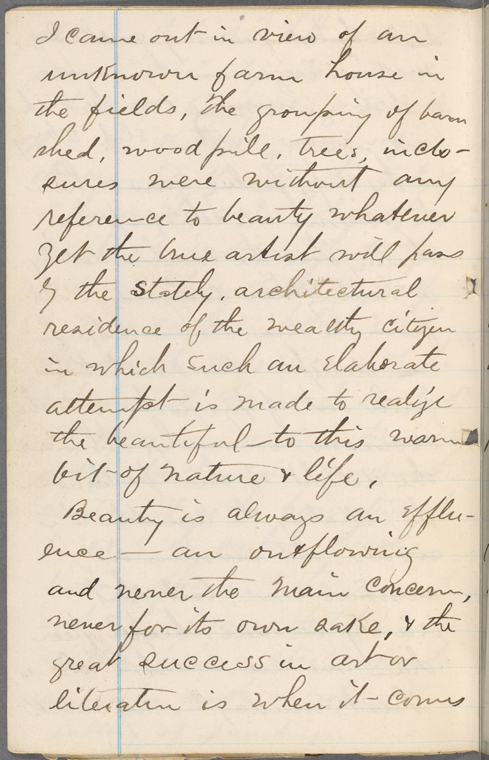 I came out in view of an
unknown farm house in
the fields, the grouping of barn
shed, woodpile, trees, inclo-
sures were without any
reference to beauty whatever
yet the true artist will pass
by the stately, architectural
residence of the wealthy citizen
in which such an elaborate
attempt is made to realize
the beautiful—to this warm
bit of nature & life.
Beauty is always an efflu-
ence — an outflowing
and never the main concern,
never for its own sake, & the
great success in art or
literature is when it comes